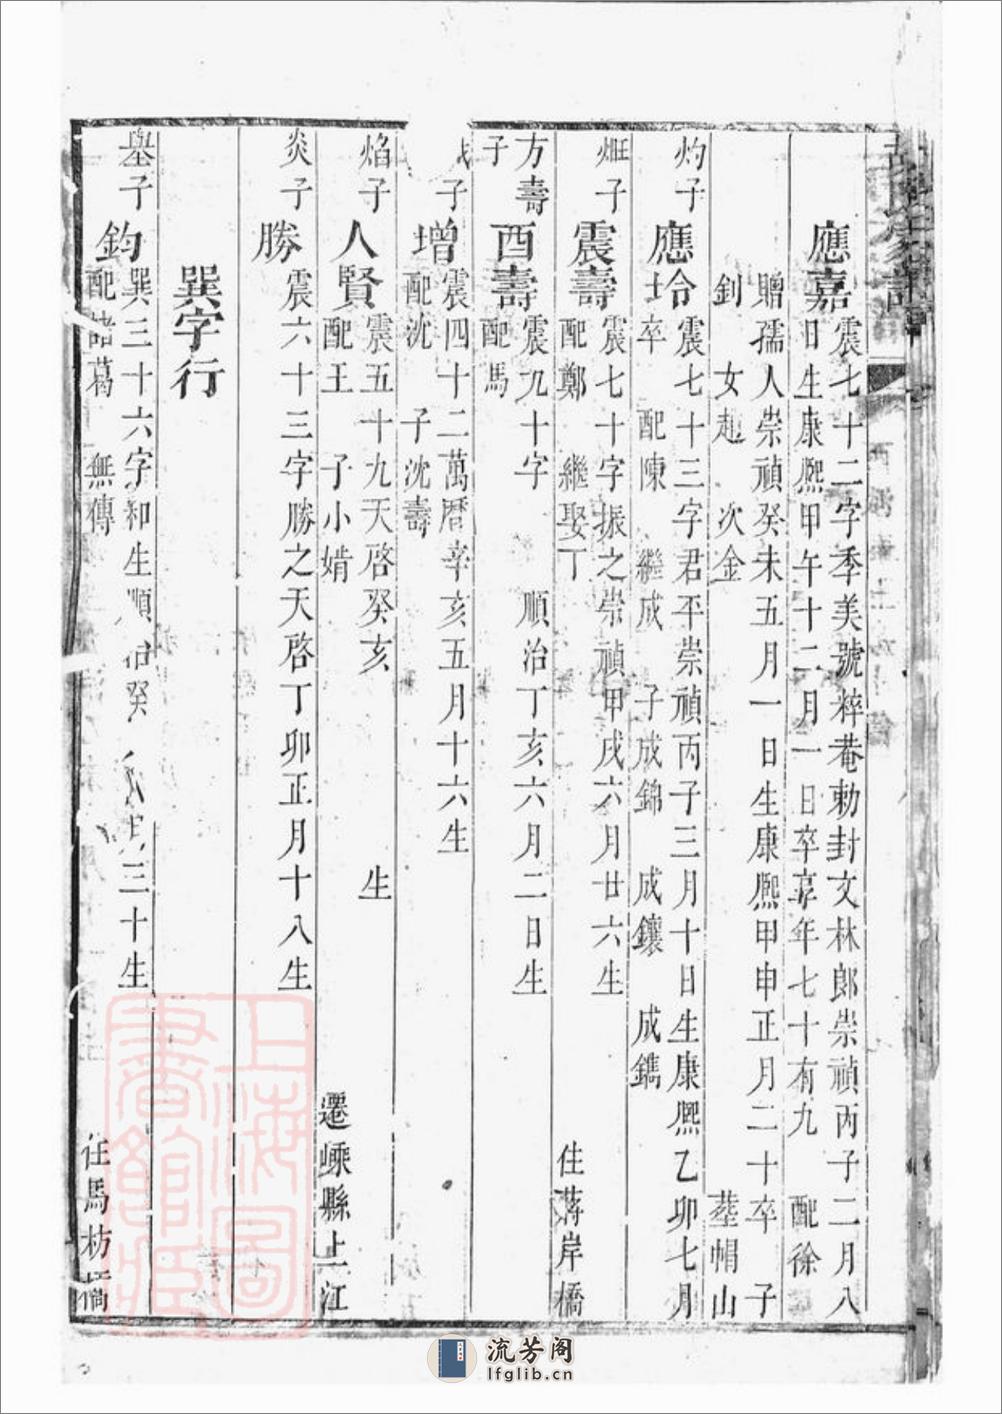 應嘉
震七十二字季美號粹菴勅封文林郎崇禎丙子二月八
日生康熙甲午十二月一日卒享年七十有九 配徐
贈孺人崇禎癸未五月一日生康熙甲申正月二十卒 子
釗 女赴 次金 葬帽山
灼子
應坽
震七十三字君平崇禎丙子三月十日生康熙乙卯七月
卒 配陳 繼成 子成錦 成鑲 成鐫
烓子
震壽
震七十字振之崇禎甲戌六月廿六生
配鄭 繼娶丁 住蔣岸橋
方壽
子
酉壽
震九十字 順治丁亥六月二日生
配馬
子
增
震四十二萬曆辛亥五月十六生
配沈 子沈壽
焰子
人賢
震五十九天啓癸亥 生
配王 子小婧 遷嵊縣上江
炎子
勝
震六十三字勝之天啓丁卯正月十八生
巽字行
壆子
鈞
巽三十六字和生順治癸 三十生
配諸葛 無傳 住馬枋橋
上海圖書館藏
流芳阁
lfglib.cn